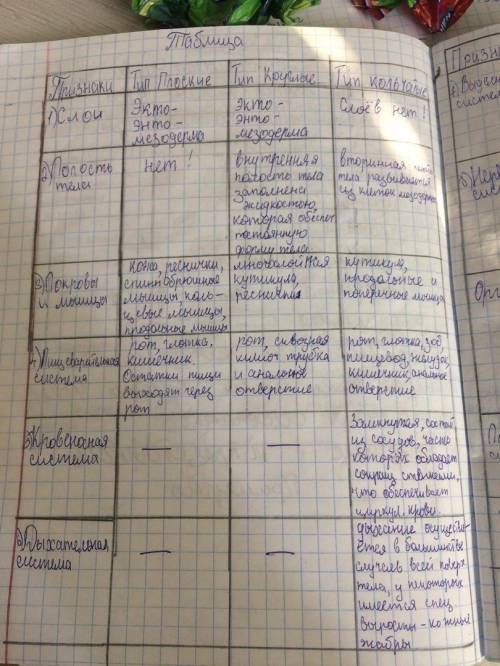 Таблица
Признаки
Тип Плоские
Тип Круглые
Тип кольчатые
1) Слои
Экто-
энто-
мезодерма
Экто-
энто-
мезодерма
Слоёв нет!
2) Полость
тела
нет!
внутренняя
полость тела
заполнена
жидкостью,
которая обеспеч
постоянную
форму тела
вторичная
тела развивается
из клеток мезодермы
3) Покровы
и мышцы
кожа, реснички,
спинобрюшные
мышцы, коль-
цевые мышцы,
продольные мышцы
многослойная
кутикула,
кутикула,
продольные и
поперечные мышцы
4) Пищеварительная
система
рот, глотка,
кишечник.
Остатки пищи
выходят через
рот
рот, сквозная
кишеч трубка
и анальное
отверстие
рот, глотка, зоб
пищевод, желудок,
кишечник, анальное
отверстие
5) Кровеносная
система
—
—
Замкнутая, состоит
из сосудов, часть
которых обладает
что обеспечивает
циркул. крови.
6) Дыхательная
система
—
—
дыхание осуществл-
ется в большинстве
случаев всей поверх
тела, у некоторых
имеется спец.
выросты - кожные
жабры
Признак
системы
Орг